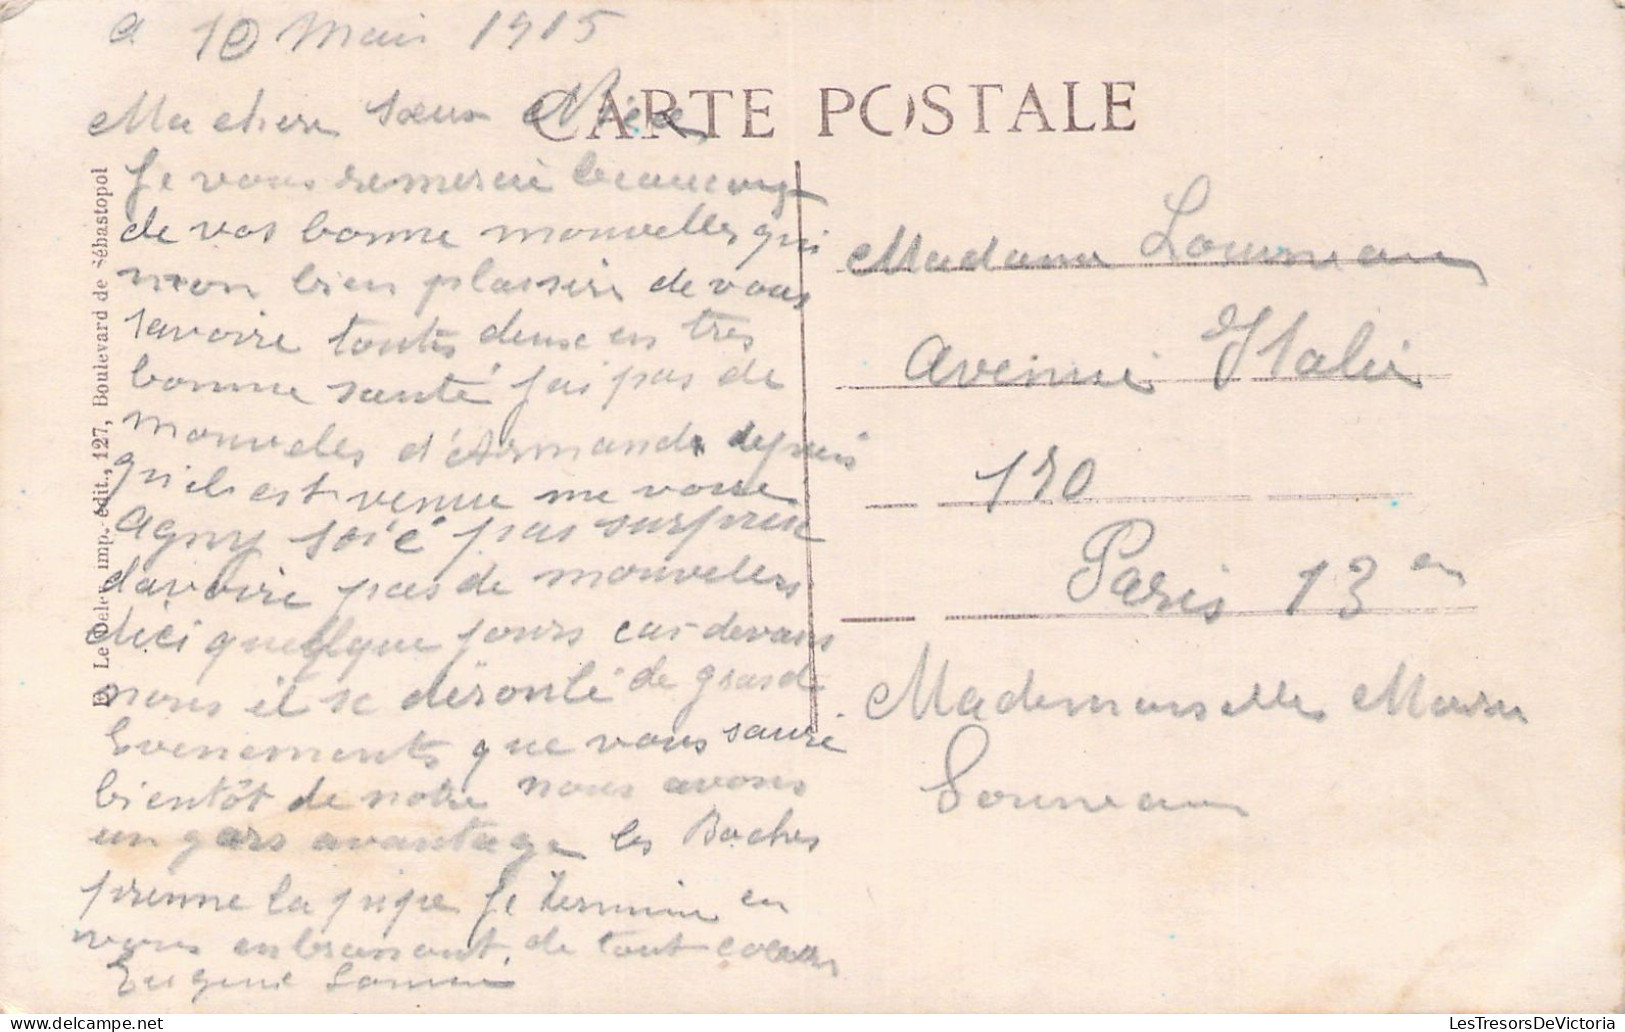 a 10 Mai 1915
CARTE POSTALE
Ma chere sœur Niece
Je vous remercie beaucoup
de vos bonne nouvelles qui
mon bien plaisire de vous
savoire toutes deux en tres
bonne santé j'ai pas de
nouvelles d'Armande depuis
qu'il est venue me voire
Agny soié pas surprise
davoire pas de nouvelles
dici quelque jours car devans
nous il se déroule de grand
Evenements que vous sauré
bientôt de notre nous avons
un gros avantage les Boches
prenne la pipe Je termine en
vous enbrassant de tout cœur
Eugene
E. Le Deley, imp. édit., 127, Boulevard de Sébastopol
Madame Lourneau
Avenue Italie
170
Paris 13 em
Mademoiselle
Lourneau
LesTresorsDeVictoria